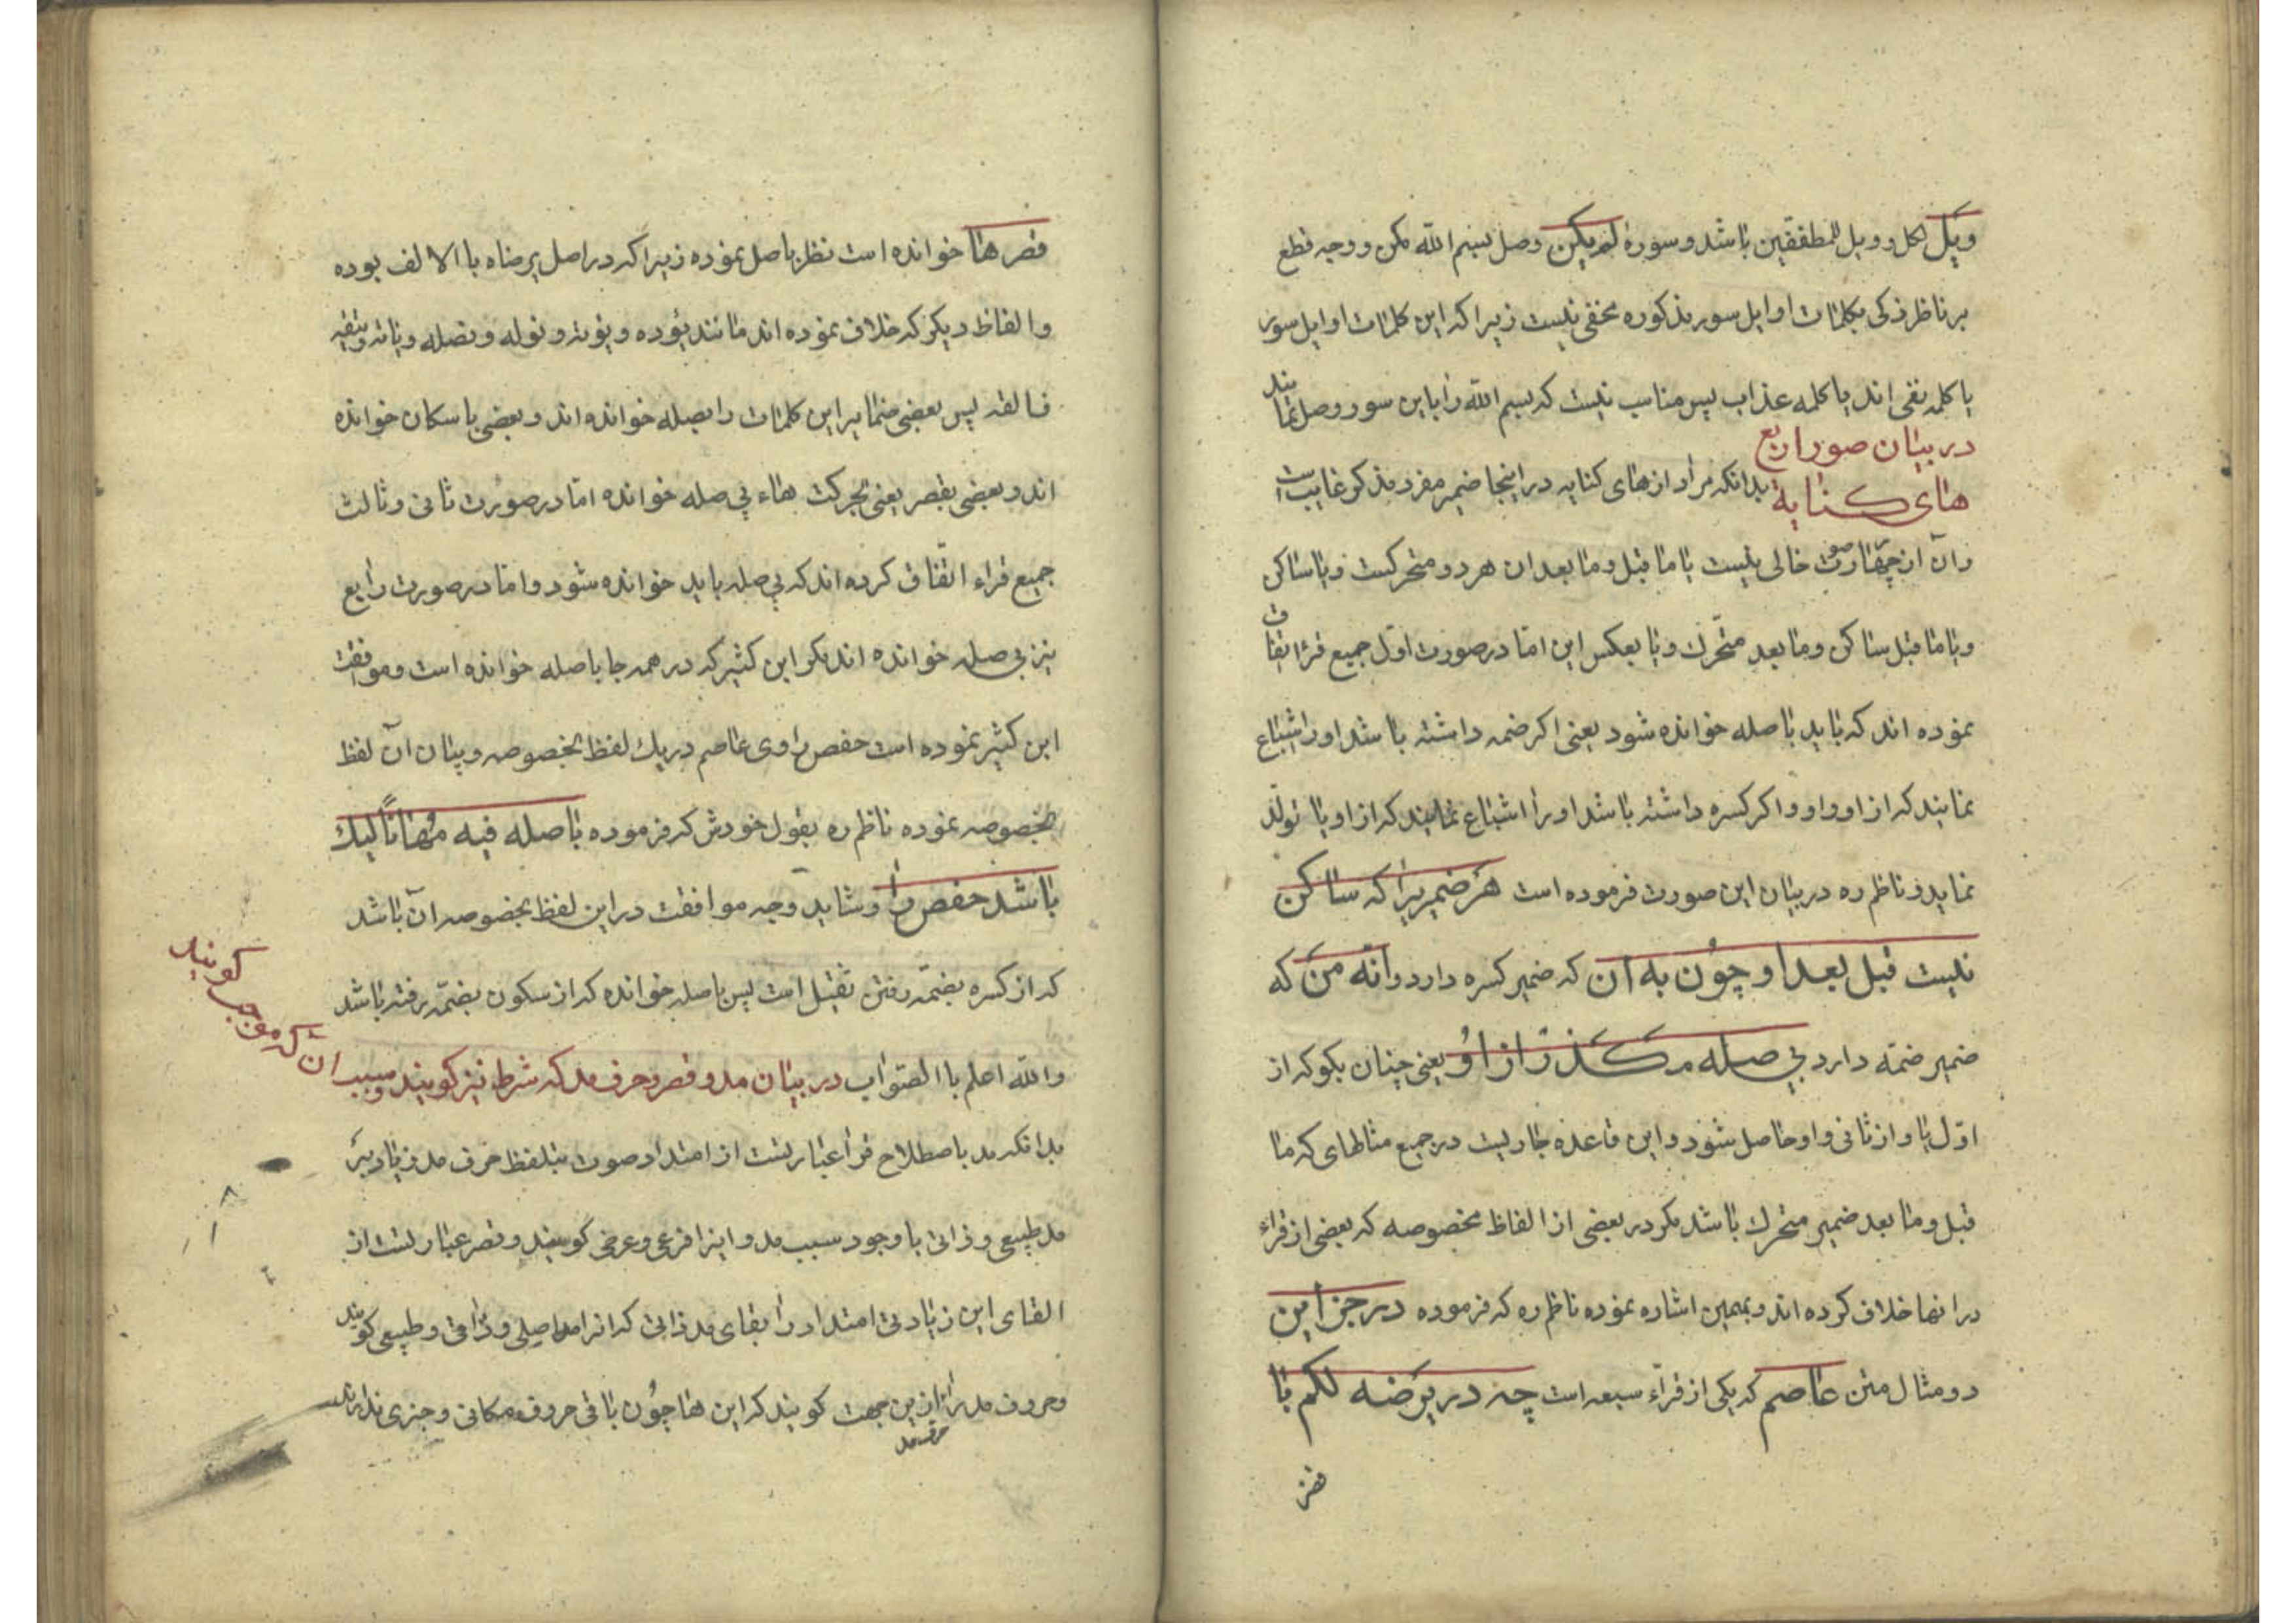 ویل لکل و ویل للمطففین باشد و سورهٔ لم یکن وصل بسم الله مکن و وجه قطع
بر ناظر ذکی بکلمات اوایل سور مذکوره مخفی نیست زیرا که این کلمات اوایل سور
یا کلمه نفی اند یا کلمه عذاب پس مناسب نیست که بسم الله را باین سور وصل نمایند
در بیان صور اربع
های کنایة بدانکه مراد از های کنایه در اینجا ضمیر مفرد مذکر غایب است
و آن از چهار صورت خالی نیست یا ما قبل و ما بعد ان هر دو متحرکست و یا ساکن
و یا ما قبل ساکن و ما بعد متحرک و یا بعکس این اما در صورت اول جمیع قرا اتفاق
نموده اند که باید با صله خوانده شود یعنی اکر ضمه داشته باشد او را اشباع
نمایند که از او واو و اکر کسره داشته باشد او را اشباع نمایند که از او یا تولد
نماید و ناظم ره در بیان این صورت فرموده است هر ضمیریرا که ساکن
نیست قبل بعد او چون به ان که ضمیر کسره دارد و انه من که
ضمیر ضمّه دارد بی صله مکذر از او یعنی چنان بکو که از
اوّل یا و از ثانی واو حاصل شود و این قاعده جاریست در جمیع مثالهای که ما
قبل و ما بعد ضمیر متحرک باشد مکر در بعضی از الفاظ مخصوصه که بعضی از قراء
در انها خلاف کرده اند و بهمین اشاره نموده ناظم ره که فرموده در جز این
دو مثال متن عاصم که یکی از قرّاء سبعه است چه در یرضه لکم با
قصر
قصر ها خوانده است نظر باصل نموده زیرا که در اصل یرضاه با الالف بوده
و الفاظ دیکر که خلاف نموده اند مانند یؤده و یؤته و نوله و نصله و یاته و یتقه
فالقه پس بعضی ضمایر این کلمات را بصله خوانده اند و بعضی باسکان خوانده
اند و بعضی بقصر یعنی بحرکت هاء بی صله خوانده اما در صورت ثانی و ثالث
جمیع قراء اتّفاق کرده اند که بی صله باید خوانده شود و اما در صورت رابع
نیز بی صله خوانده اند مکر ابن کثیر که در همه جا با صله خوانده است و موافقت
ابن کثیر نموده است حفص راوی عاصم در یک لفظ بخصوصه و بیان آن لفظ
بخصوصه نموده ناظم ره بقول خودش که فرموده با صله فیه مُهاناً لیک
باشد حفص را و شاید وجه موافقت در این لفظ بخصوصه آن باشد
که از کسره بضمّه رفتن ثقیل است پس با صله خوانده که از سکون بضمّه رفته باشد
و الله اعلم با الصّواب در بیان مد و قصر و حرف مد که شرط نیز کویند و سبب ان که موجب کویند
بدانکه مد باصطلاح قرا عبارتست از امتداد صوت بتلفظ حرف مد زیاد بر
مد طبیعی و ذاتی با وجود سبب مد و اینرا فرعی و عرضی کویند و قصر عبارتست از
القای این زیادتی امتداد را بقای مد ذاتی که انرا مد اصلی و ذاتی و طبیعی کویند
و حروف مد را از این جهت حرف مد کویند که این ها چون باقی حروف مکانی و حیزی ندارند